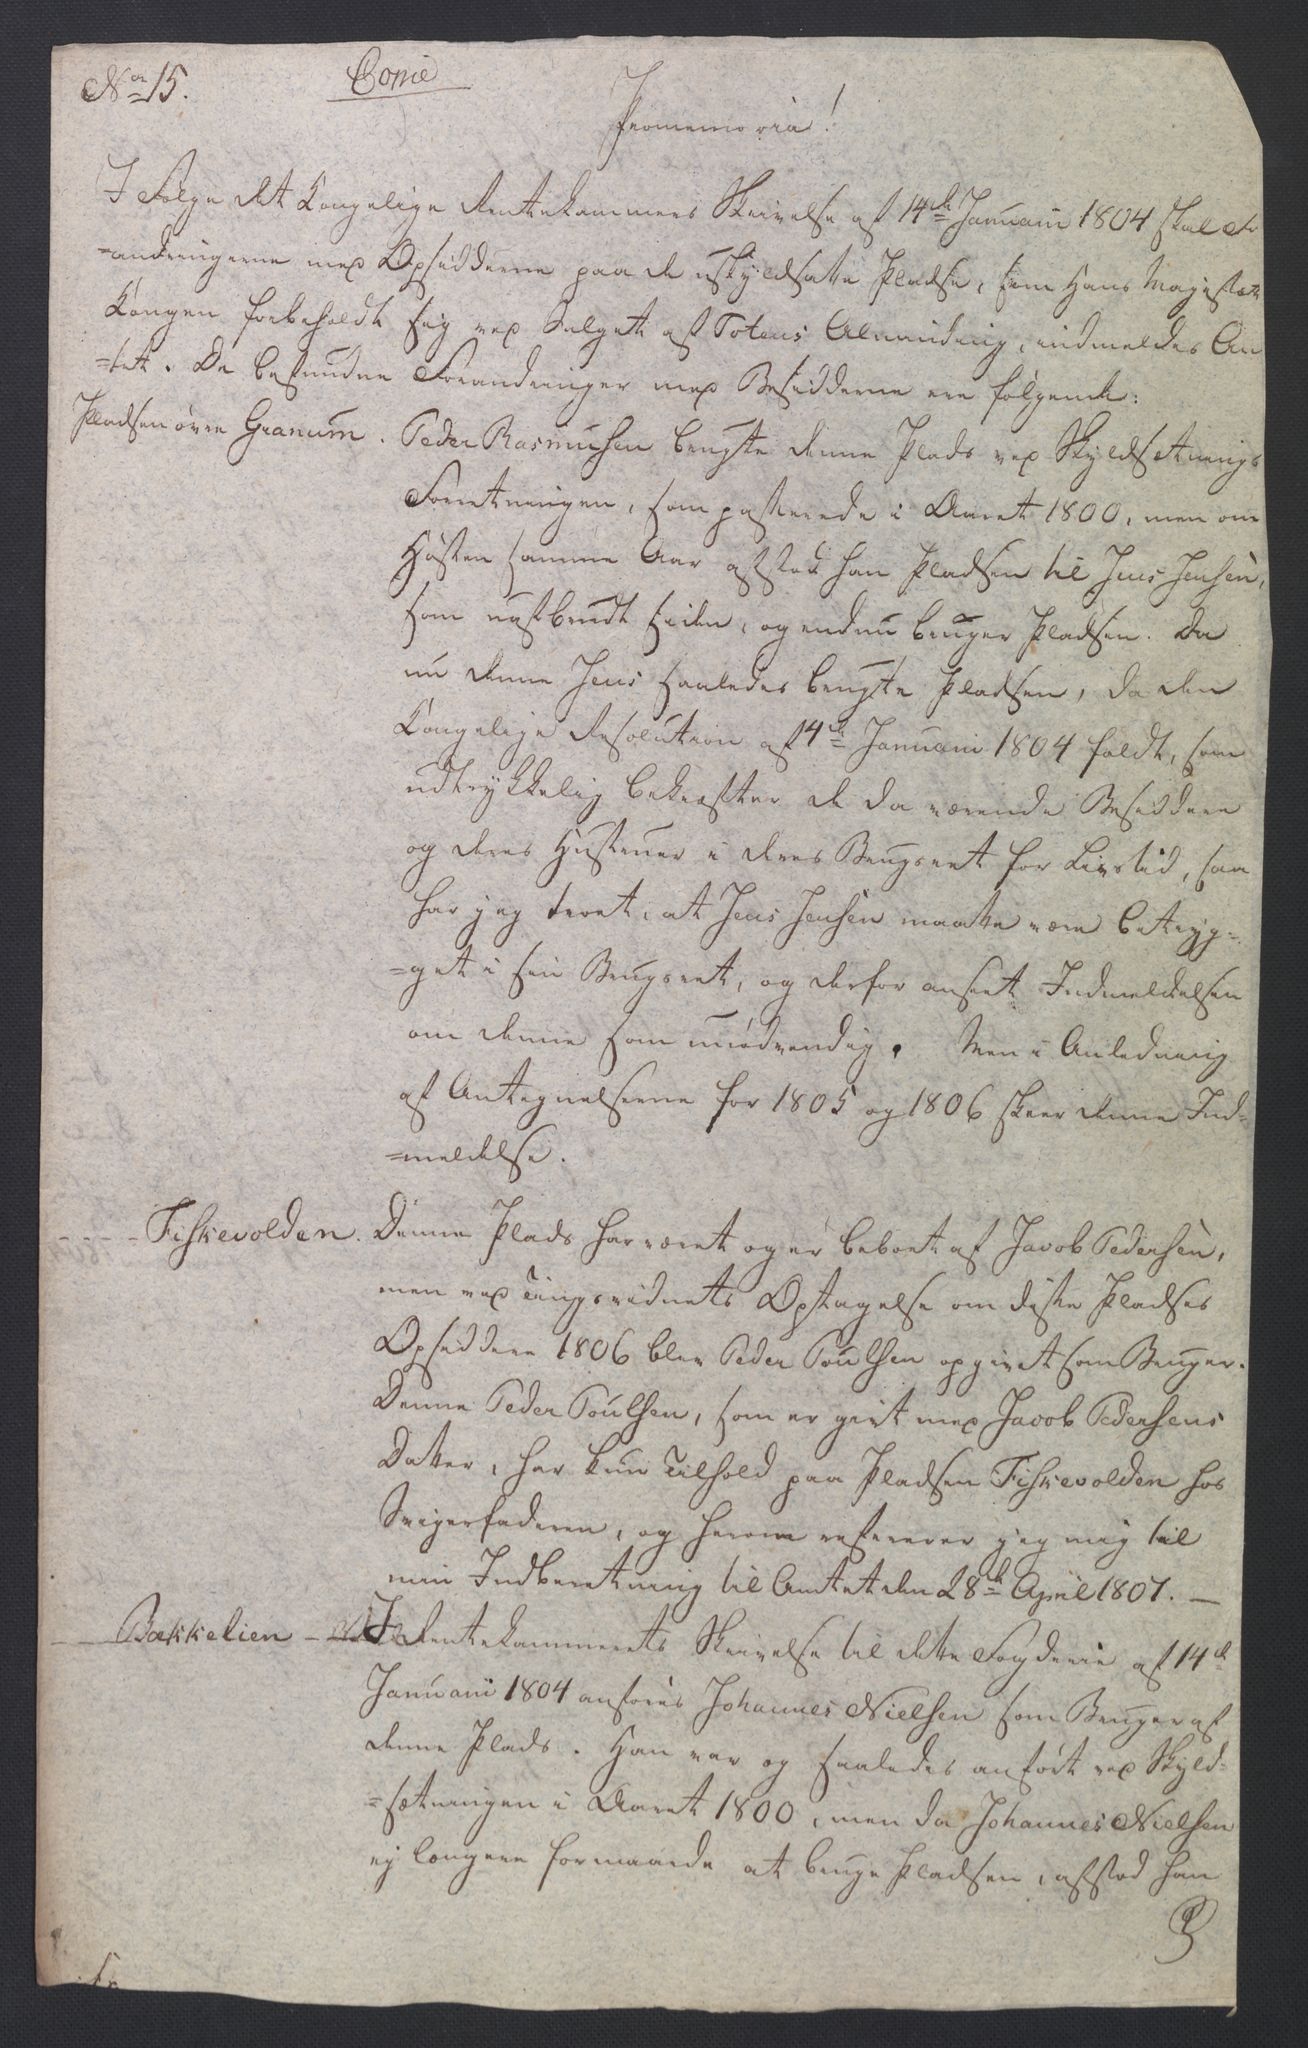 No 15. Copie
Promemoria!
I Følge det Kongelige Rentekammers Skrivelse af 14de Januarii 1804 skal For
=andringerne med Opsidderne paa de uskyldsatte Pladse, som Hans Majestæt
Kongen forbeholdt sig ved Salget af Totens Alminding, indmeldes Am
=tet. De befundne Forandringer med Besidderne ere følgende:
Pladsen øvre Granum. Peder Rasmusen brugte denne Plads ved Skyldsetnings
Forretningen, som passerede i Aaret 1800, men om
Høsten samme Aar afstod han Pladsen til Jens Jensen,
som har brudt siden, og endnu bruger Pladsen. Da
nu denne Jens saaledes brugte Pladsen, da den
Kongelige Resolution af 14de Januarii 1804 faldt, som
udtrykkelig bekræfter de da værende Besiddere
og deres Hustruer i deres Brugsret for Livstid, saa
har jeg troet, at Jens Jensen maatte være betryg=
=get i sin Brugsret, og derfor anseet Indmeldelsen
om denne som unødvendig. Men i Anledning
af Antegnelserne for 1805 og 1806 skeer denne Ind=
=meldelse.
Fiskevolden. Denne Plads har været og er beboet af Jacob Pedersen,
men ved Tingsvidnets Optagelse om disse Pladses
Opsiddere 1806 blev Peder Poulsen opgivet som Bruger.
Denne Peder Poulsen, som er givt med Jacob Pedersens
Datter, har kun Tilhold paa Pladsen Fiskevolden hos
Svigerfaderen, og herom refererer jeg mig til
min Indberetning til Amtet den 28de April 1807. —
Bækkelien — I Rentekammerets Skrivelse til dette Fogderie af 14de
Januarii 1804 anføres Johannes Nielsen som Bruger af
denne Plads. Han var og saaledes anført ved Skyld=
=sætningen i Aaret 1800, men da Johannes Nielsen
ej længere formaaede at bruge Pladsen, afstod han